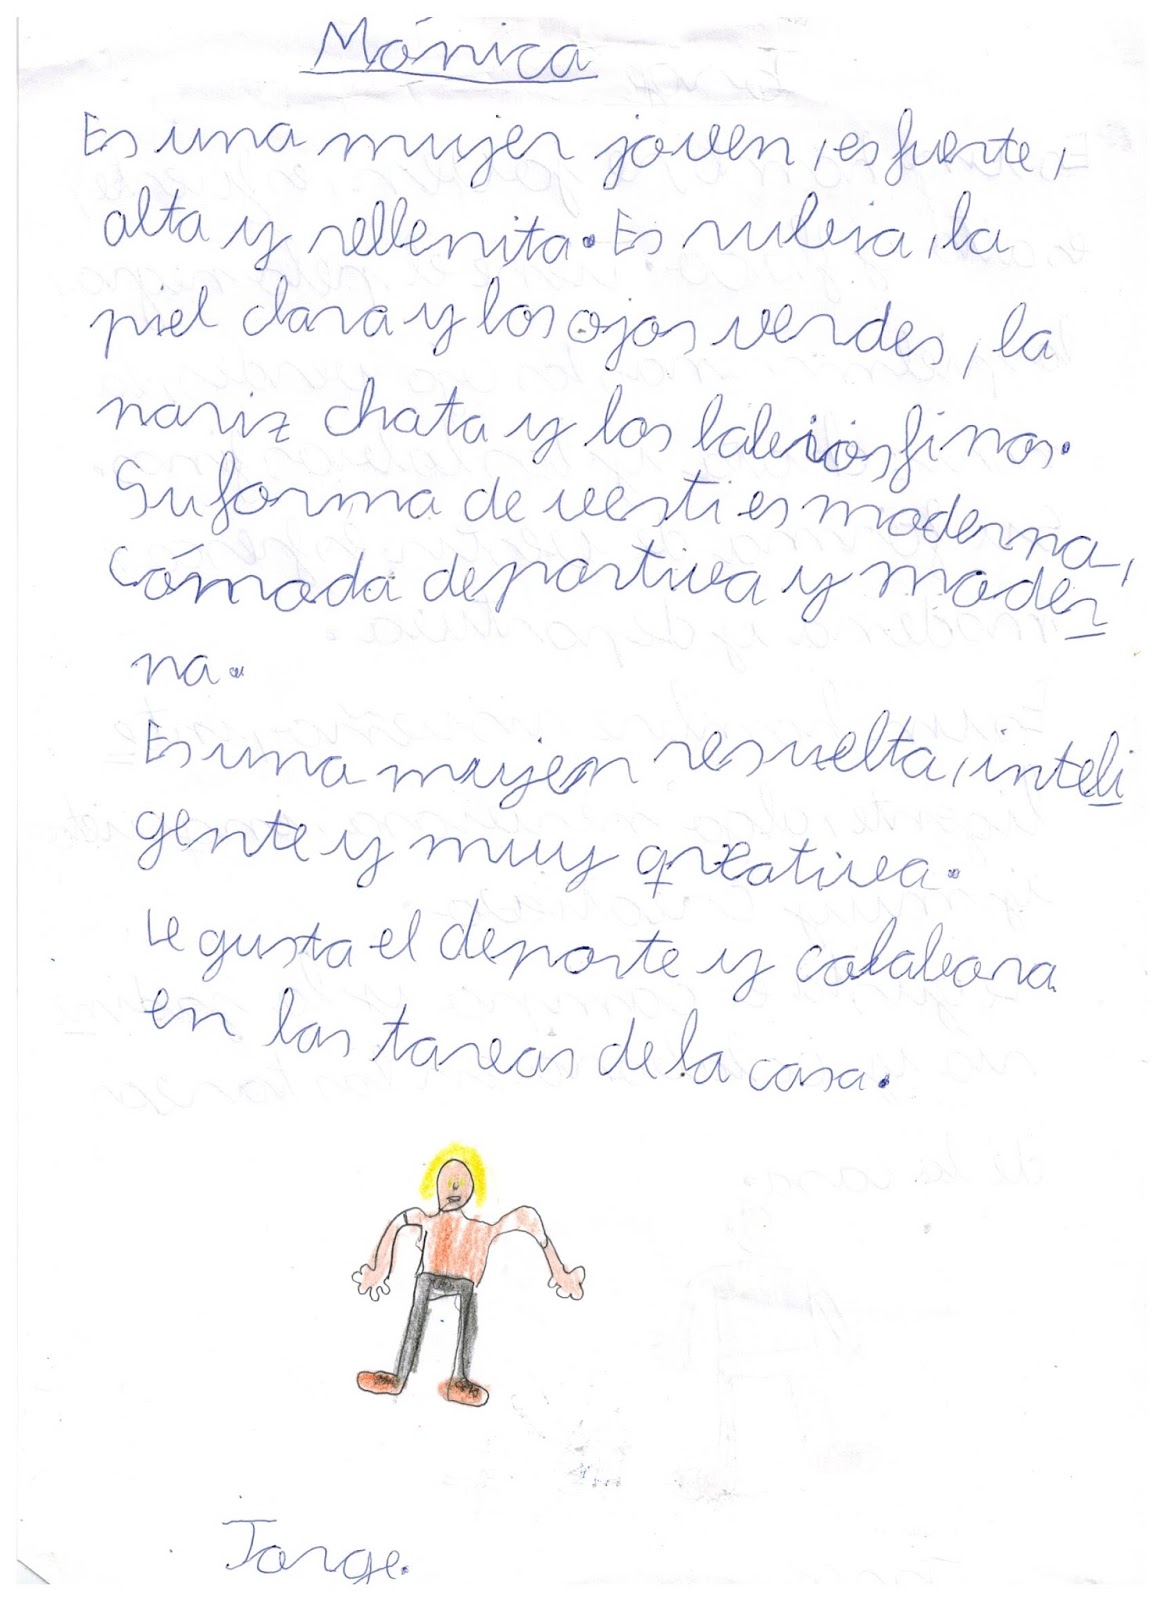 Mónica
Es una mujer joven, es fuerte,
alta y rellenita. Es rubia, la
piel clara y los ojos verdes, la
nariz chata y los labios finos.
Su forma de vesti es moderna,
cómoda deportiva y moder
na.
Es una mujer resuelta, inteli
gente y muy qreativa.
Le gusta el deporte y colabora
en las tareas de la casa.
Jorge.